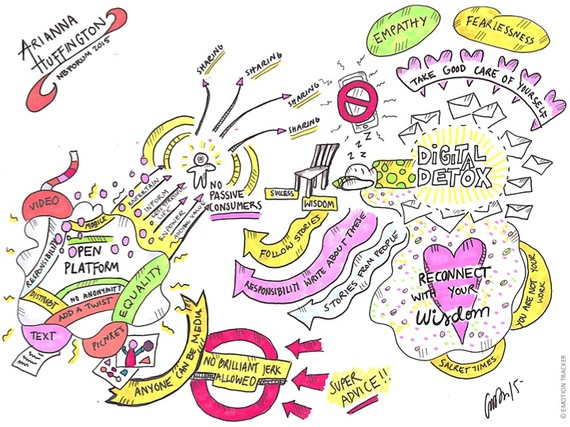 ARIANNA
HUFFINGTON
NBFORUM 2015
SHARING
SHARING
SHARING
SHARING
EMPATHY
FEARLESSNESS
TAKE GOOD CARE OF YOURSELF
DIGITAL
DETOX
Z Z Z
NO
PASSIVE
CONSUMERS
SUCCESS
WISDOM
ENTERTAIN
INFORM
EMPOWER
VIDEO
MOBILE
RESPONSIBILITY
OPEN
PLATFORM
NO ANONYMITY
ADD A TWIST
DISTRUPT
EQUALITY
TEXT
PICTURES
FOLLOW STORIES
RESPONSIBILITI WRITE ABOUT THESE
STORIES FROM PEOPLE
RECONNECT
WITH YOUR
WISDOM
YOU ARE NOT YOUR
WORK
SACRET TIMES
ANYONE CAN BE MEDIA
NO BRILLIANT JERK
ALLOWED
SUPER
ADVICE!!
© EMOTION TRACKER